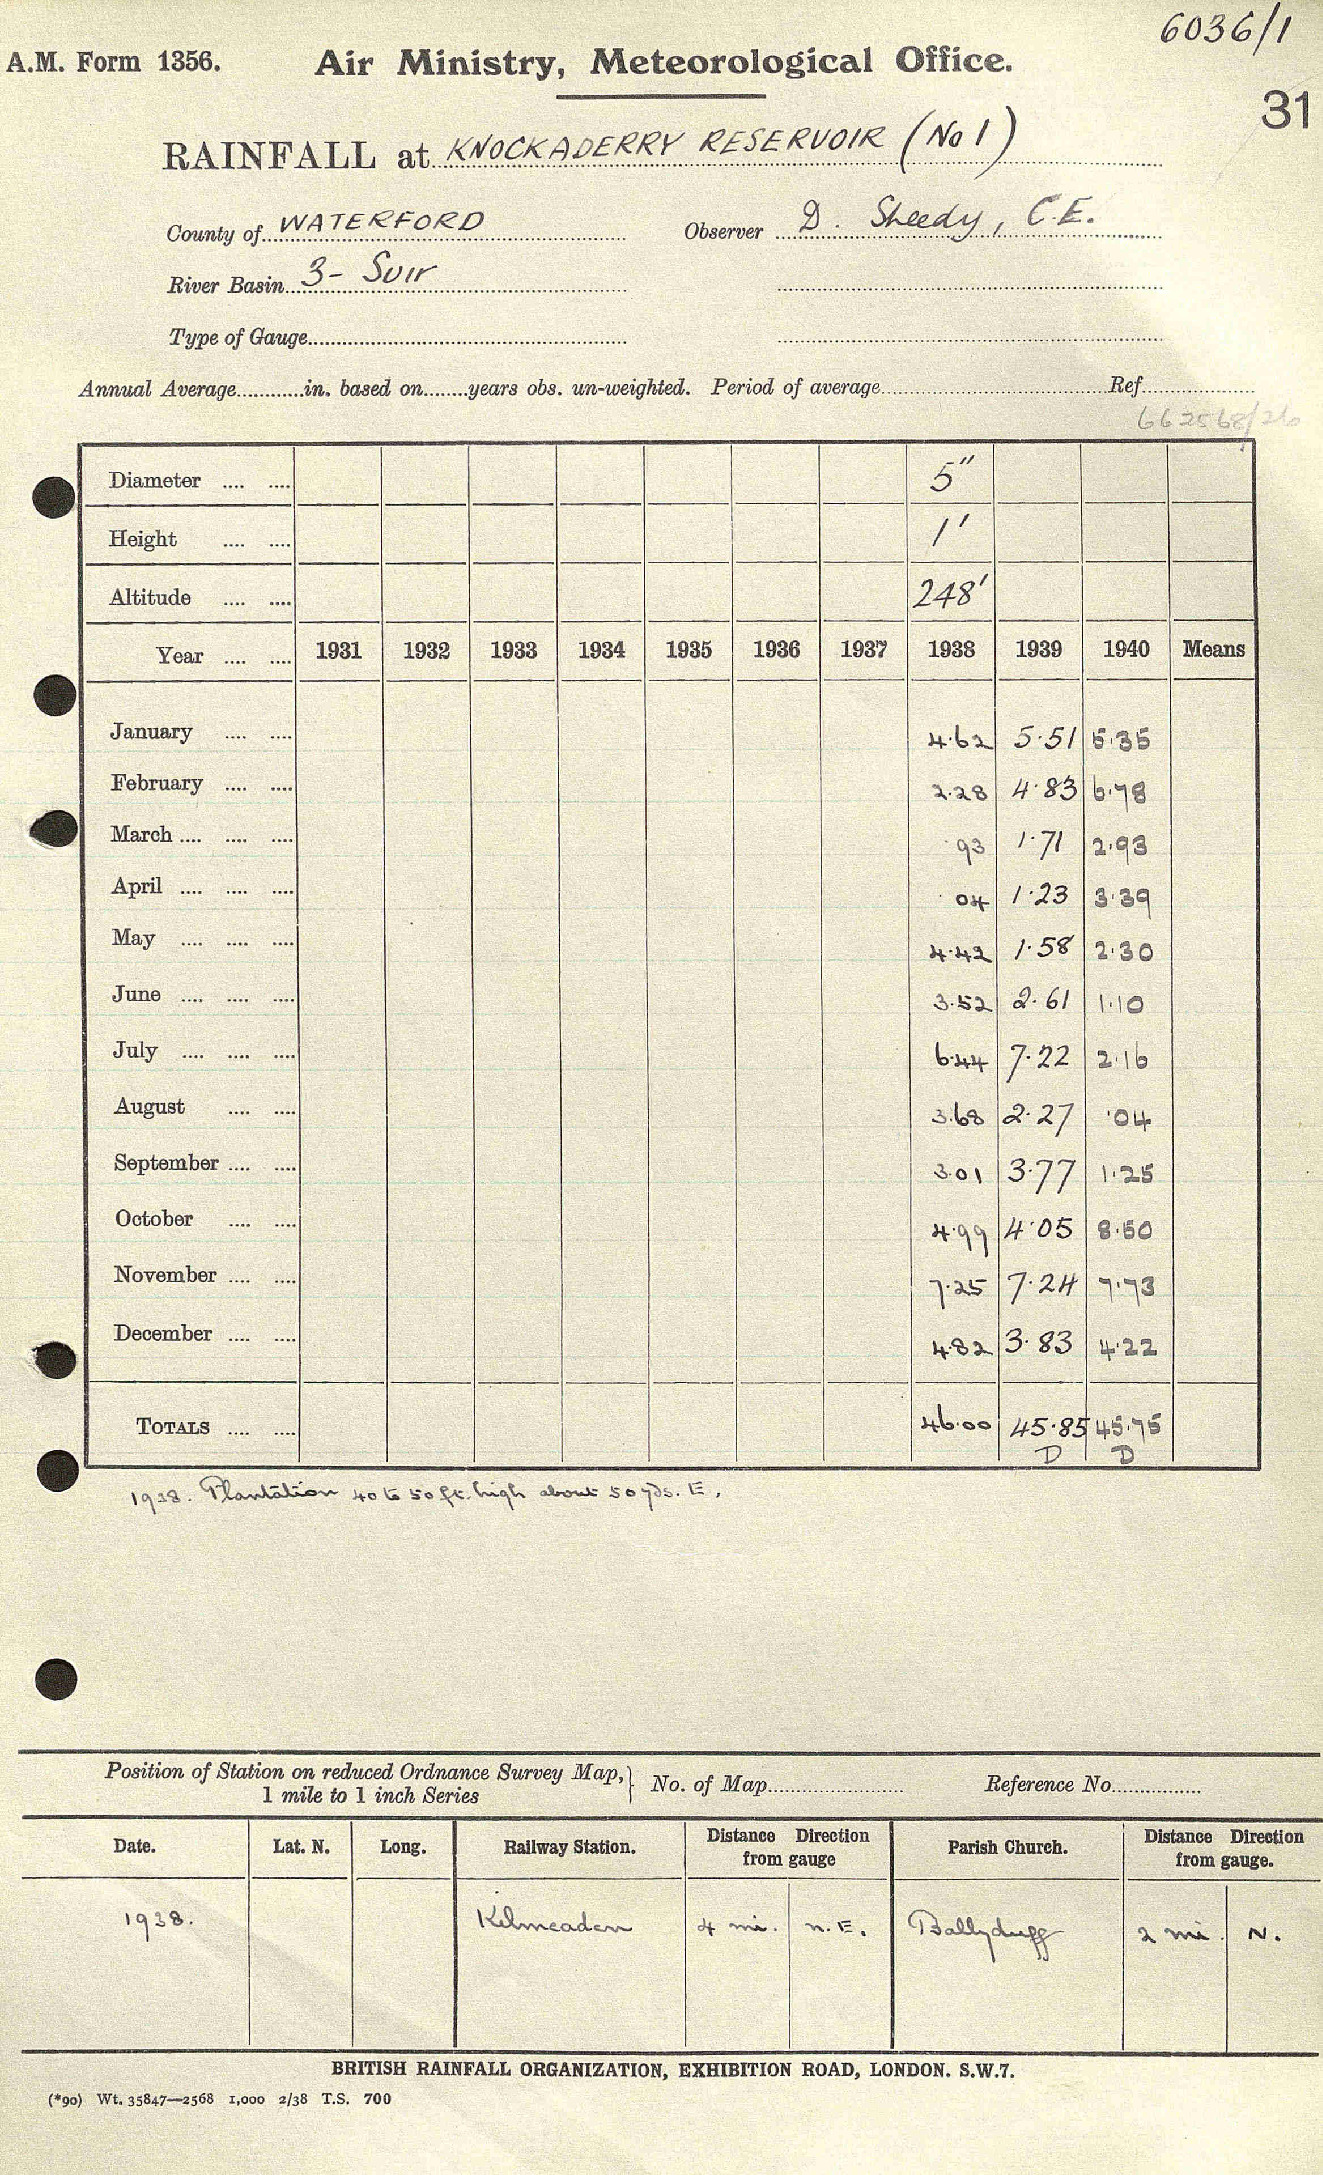 6036/1
A.M. Form 1356. Air Ministry, Meteorological Office.
31
RAINFALL at KNOCKADERRY RESERVOIR (No 1)
County of WATERFORD Observer D. Sheedy, C.E.
River Basin 3- Suir
Type of Gauge
Annual Average in. based on years obs. un-weighted. Period of average Ref
662568/26
Diameter 5"
Height 1'
Altitude 248'
Year 1931 1932 1933 1934 1935 1936 1937 1938 1939 1940 Means
January 4.62 5.51 5.35
February 2.28 4.83 6.78
March .93 1.71 2.93
April .04 1.23 3.39
May 4.42 1.58 2.30
June 3.52 2.61 1.10
July 6.44 7.22 2.16
August 3.68 2.27 .04
September 3.01 3.77 1.25
October 4.99 4.05 8.50
November 7.25 7.24 7.73
December 4.82 3.83 4.22
TOTALS 46.00 45.85 45.75
D D
1938. Plantation 40 to 50 ft. high about 50 yds. E.
Position of Station on reduced Ordnance Survey Map, 1 mile to 1 inch Series No. of Map Reference No
Date. Lat. N. Long. Railway Station. Distance Direction from gauge Parish Church. Distance Direction from gauge.
1938. Kilmeaden 4 mi. N.E. Ballyduff 2 mi. N.
BRITISH RAINFALL ORGANIZATION, EXHIBITION ROAD, LONDON. S.W.7.
(*90) Wt. 35847—2568 1,000 2/38 T.S. 700